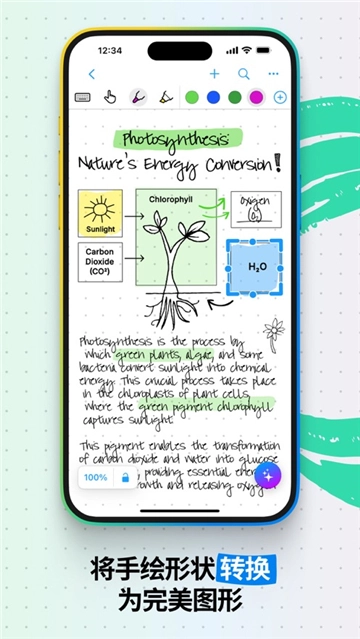 12:34
Photosynthesis:
Nature's Energy Conversion!
Chlorophyll
Oxygen
(O₂)
Sunlight
Carbon
Dioxide
(CO²)
H₂O
Photosynthesis is the process by
which green plants, algae, and some
bacteria convert sunlight into chemical
energy. This crucial process takes place
in the chloroplasts of plant cells,
where the green pigment chlorophyll
captures sunlight.
This pigment enables the transformation
of carbon dioxide and water into glucose
providing essential
100%
and releasing
将手绘形状转换
为完美图形